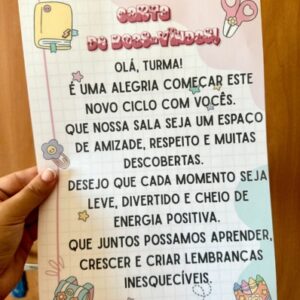 CARTA
DE BOAS-VINDAS!
OLÁ, TURMA!
É UMA ALEGRIA COMEÇAR ESTE
NOVO CICLO COM VOCÊS.
QUE NOSSA SALA SEJA UM ESPAÇO
DE AMIZADE, RESPEITO E MUITAS
DESCOBERTAS.
DESEJO QUE CADA MOMENTO SEJA
LEVE, DIVERTIDO E CHEIO DE
ENERGIA POSITIVA.
QUE JUNTOS POSSAMOS APRENDER,
CRESCER E CRIAR LEMBRANÇAS
INESQUECÍVEIS.